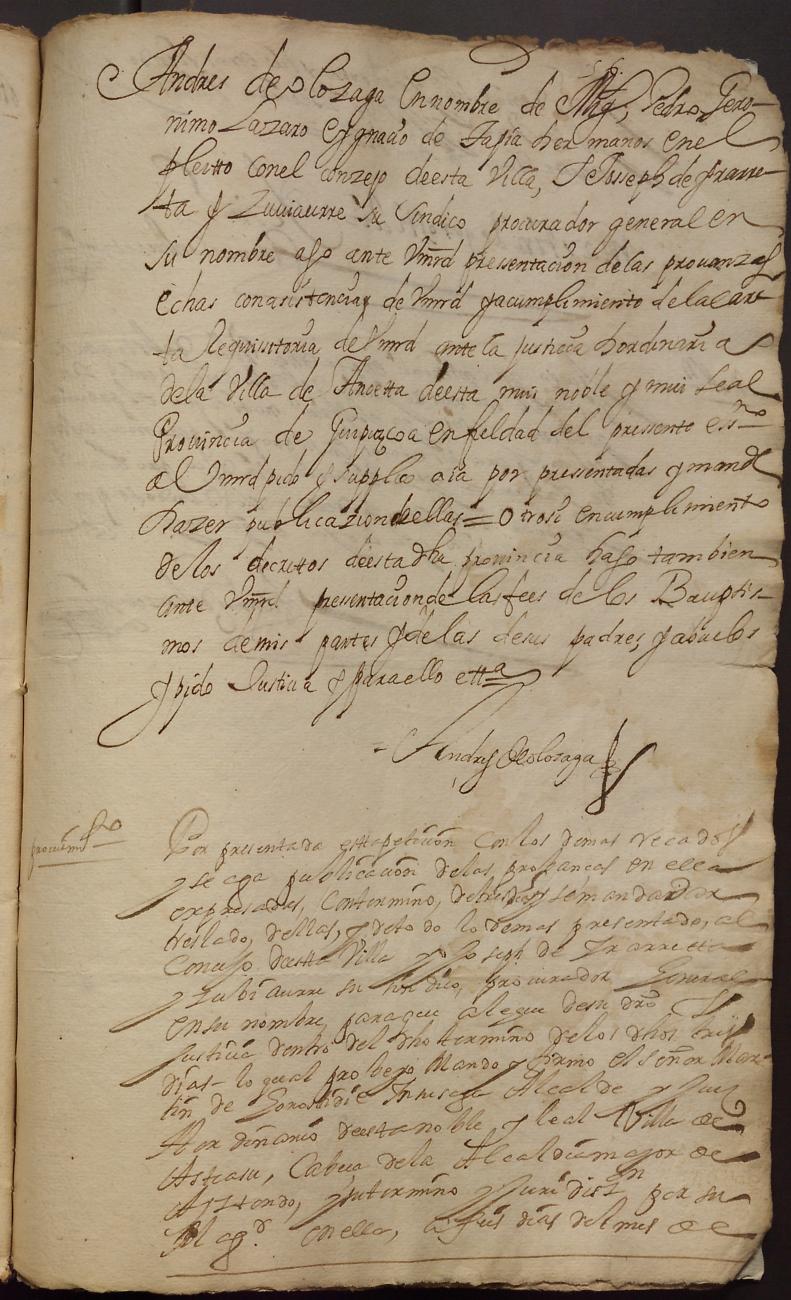 Andres de olozaga En nombre de Miğ, Pedro, Gero-
nimo Lazzaro e ygnacio de Tapia hermanos enel
pleitto conel conzejo de esta Villa, y Joseph de yrarre-
ta y Zuuiaurre su sindico procurador general en
su nombre ago ante Vmrd presentacion de las prouanzas
echas con asistencia de Vmrd y a cumplimiento de la car-
ta Requisitoria de Vmrd ante la justicia hordinaria
de la Villa de Anoetta de esta mui noble y mui Leal
Prouincia de Guipuzcoa en fieldad del pressente essno
al Vmrd pido y supplco aia por pressentadas y mande
hazer publicazion de ellas = Otrosi en cumplimiento
de los decrettos de esta dha prouincia hago tambien
ante Vmrd presentacion de las fees de los Bauptis-
mos de mis partes y de las de sus padres, y abuelos
y pido Justicia y para ello etta
Andres de olozaga
proueimto
Por presentada esta peticion con los demas recados
y se aga publicacion de las probancas en ella
expresadas, con termino, de tres dias y se mandar dar
treslado, dellas, y de to do lo demas presentado, al
Concejo de esta Villa y Joseph de Yrarretta
y Zubiaurre su sindico, procurador General
en su nombre para que alegue de su dro
Justicia dentro del dho termino de los dhos tres
dias – lo qual probeyo Mando y firmo el señor Mar-
tin de Gorostidi e Alcalde y Juez
Hordinario de esta noble y leal Villa de
Asteasu, Cabeca de la Alcaldia mayor de
Aiztondo, y su termino y jurisdisn por su
Magd. en ella, a seis dias del mes de